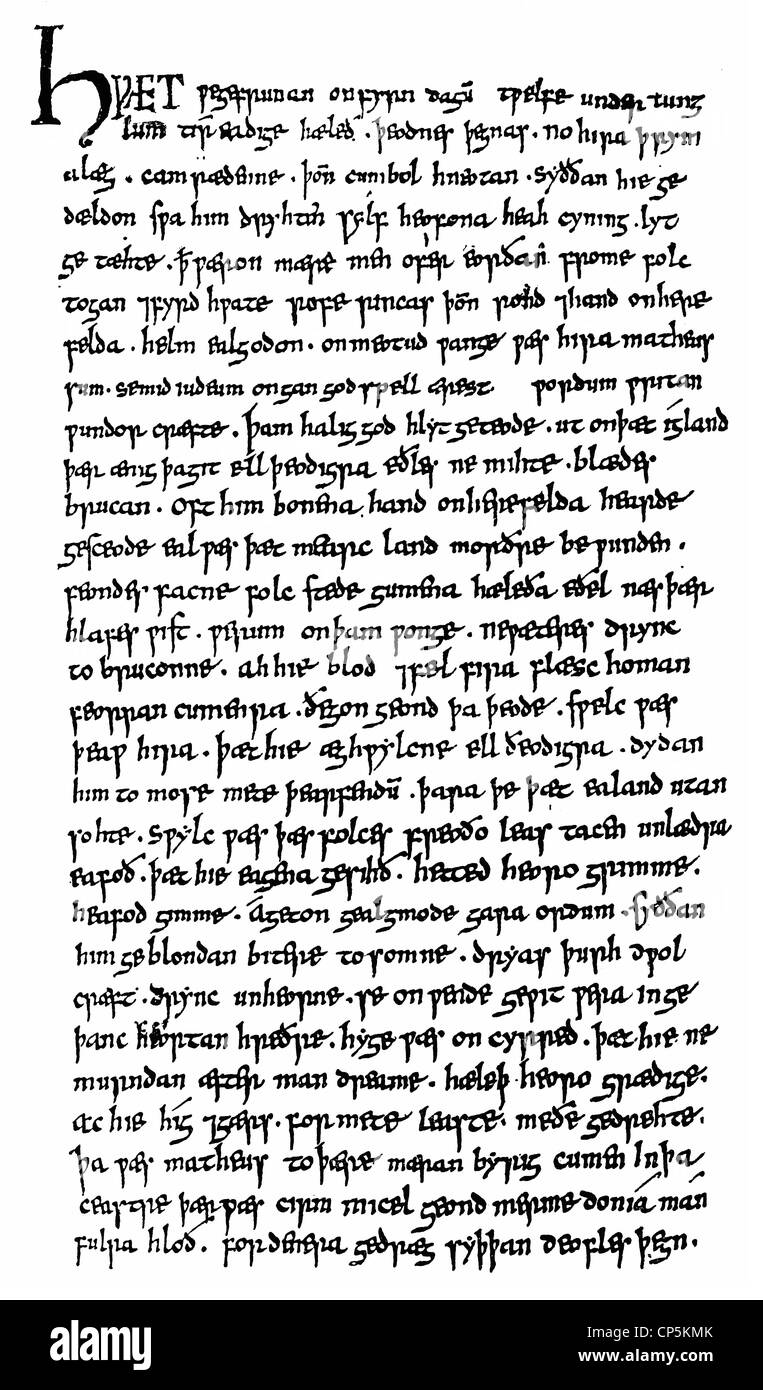 HǷÆT ƿegefrunan onfyrn dagū tƿelfe under tung
lum tir eadige hæleð · þeodnes þegnas · no hira þrym
alæg · cam rædenne · þoñ cumbol hneotan · syððan hie ge
dældon sƿa him dryhtñ sylf heofona heah cyning · lyt
ge tæhte · ꝥ ƿæron mære men ofer eorðan frome folc
togan ⁊fyrd hƿate rofe rincas þoñ rond ⁊hand onhere
felda · helm ealgodon · onmeotud ƿange ƿæs hira matheus
sum · semid iudeum ongan godspell ærest ƿordum ƿritan
ƿundor cræfte · þam halig god hlyt geteode · ut onþæt igland
þær ænig þagit ellþeodigra eðles ne mihte · blædes
brucan · oft him bonena hand onherefelda hearde
gesceode eal ƿæs þæt mearc land morðre beƿunden ·
feondes facne folc stede gumena hæleða eðel næs þær
hlafes ƿist · ƿerum onþam ƿonge · neƿæteres drync
to bruconne · ah hie blod ⁊fel fira flæsc homan
feorran cumenra · ðegon geond þa þeode · sƿelc ƿæs
þeaƿ hira · þæt hie æghƿylcne ellðeodigra · dydan
him to mose mete þearfendū · þara þe þæt ealand utan
sohte · sƿylc ƿæs þæs folces freoðo leas tacen unlædra
eafoð · þæt hie eagena gesihð · hetted heoro grimme ·
heafod gimme · ageton gealgmode gara ordum · syððan
him geblondan bitere to somne · dryas þurh dƿol
cræft · drync unheorne · se onƿende geƿit ƿera inge
þanc heortan hreðre · hyge ƿæs on cyrred · þæt hie ne
murndan æfter man dreame · hæleþ heoro grædige ·
ac hie hig ⁊gærs · for mete leaste · meðe gedrehte ·
þa ƿæs matheus to þære mæran byrig cumen Inþa
ceastre þær ƿæs cirm micel geond mermedonia man
fulra hloð · fordenera gedræg syþþan deofles þegn ·
alamy
Image ID: CP5KMK
www.alamy.com